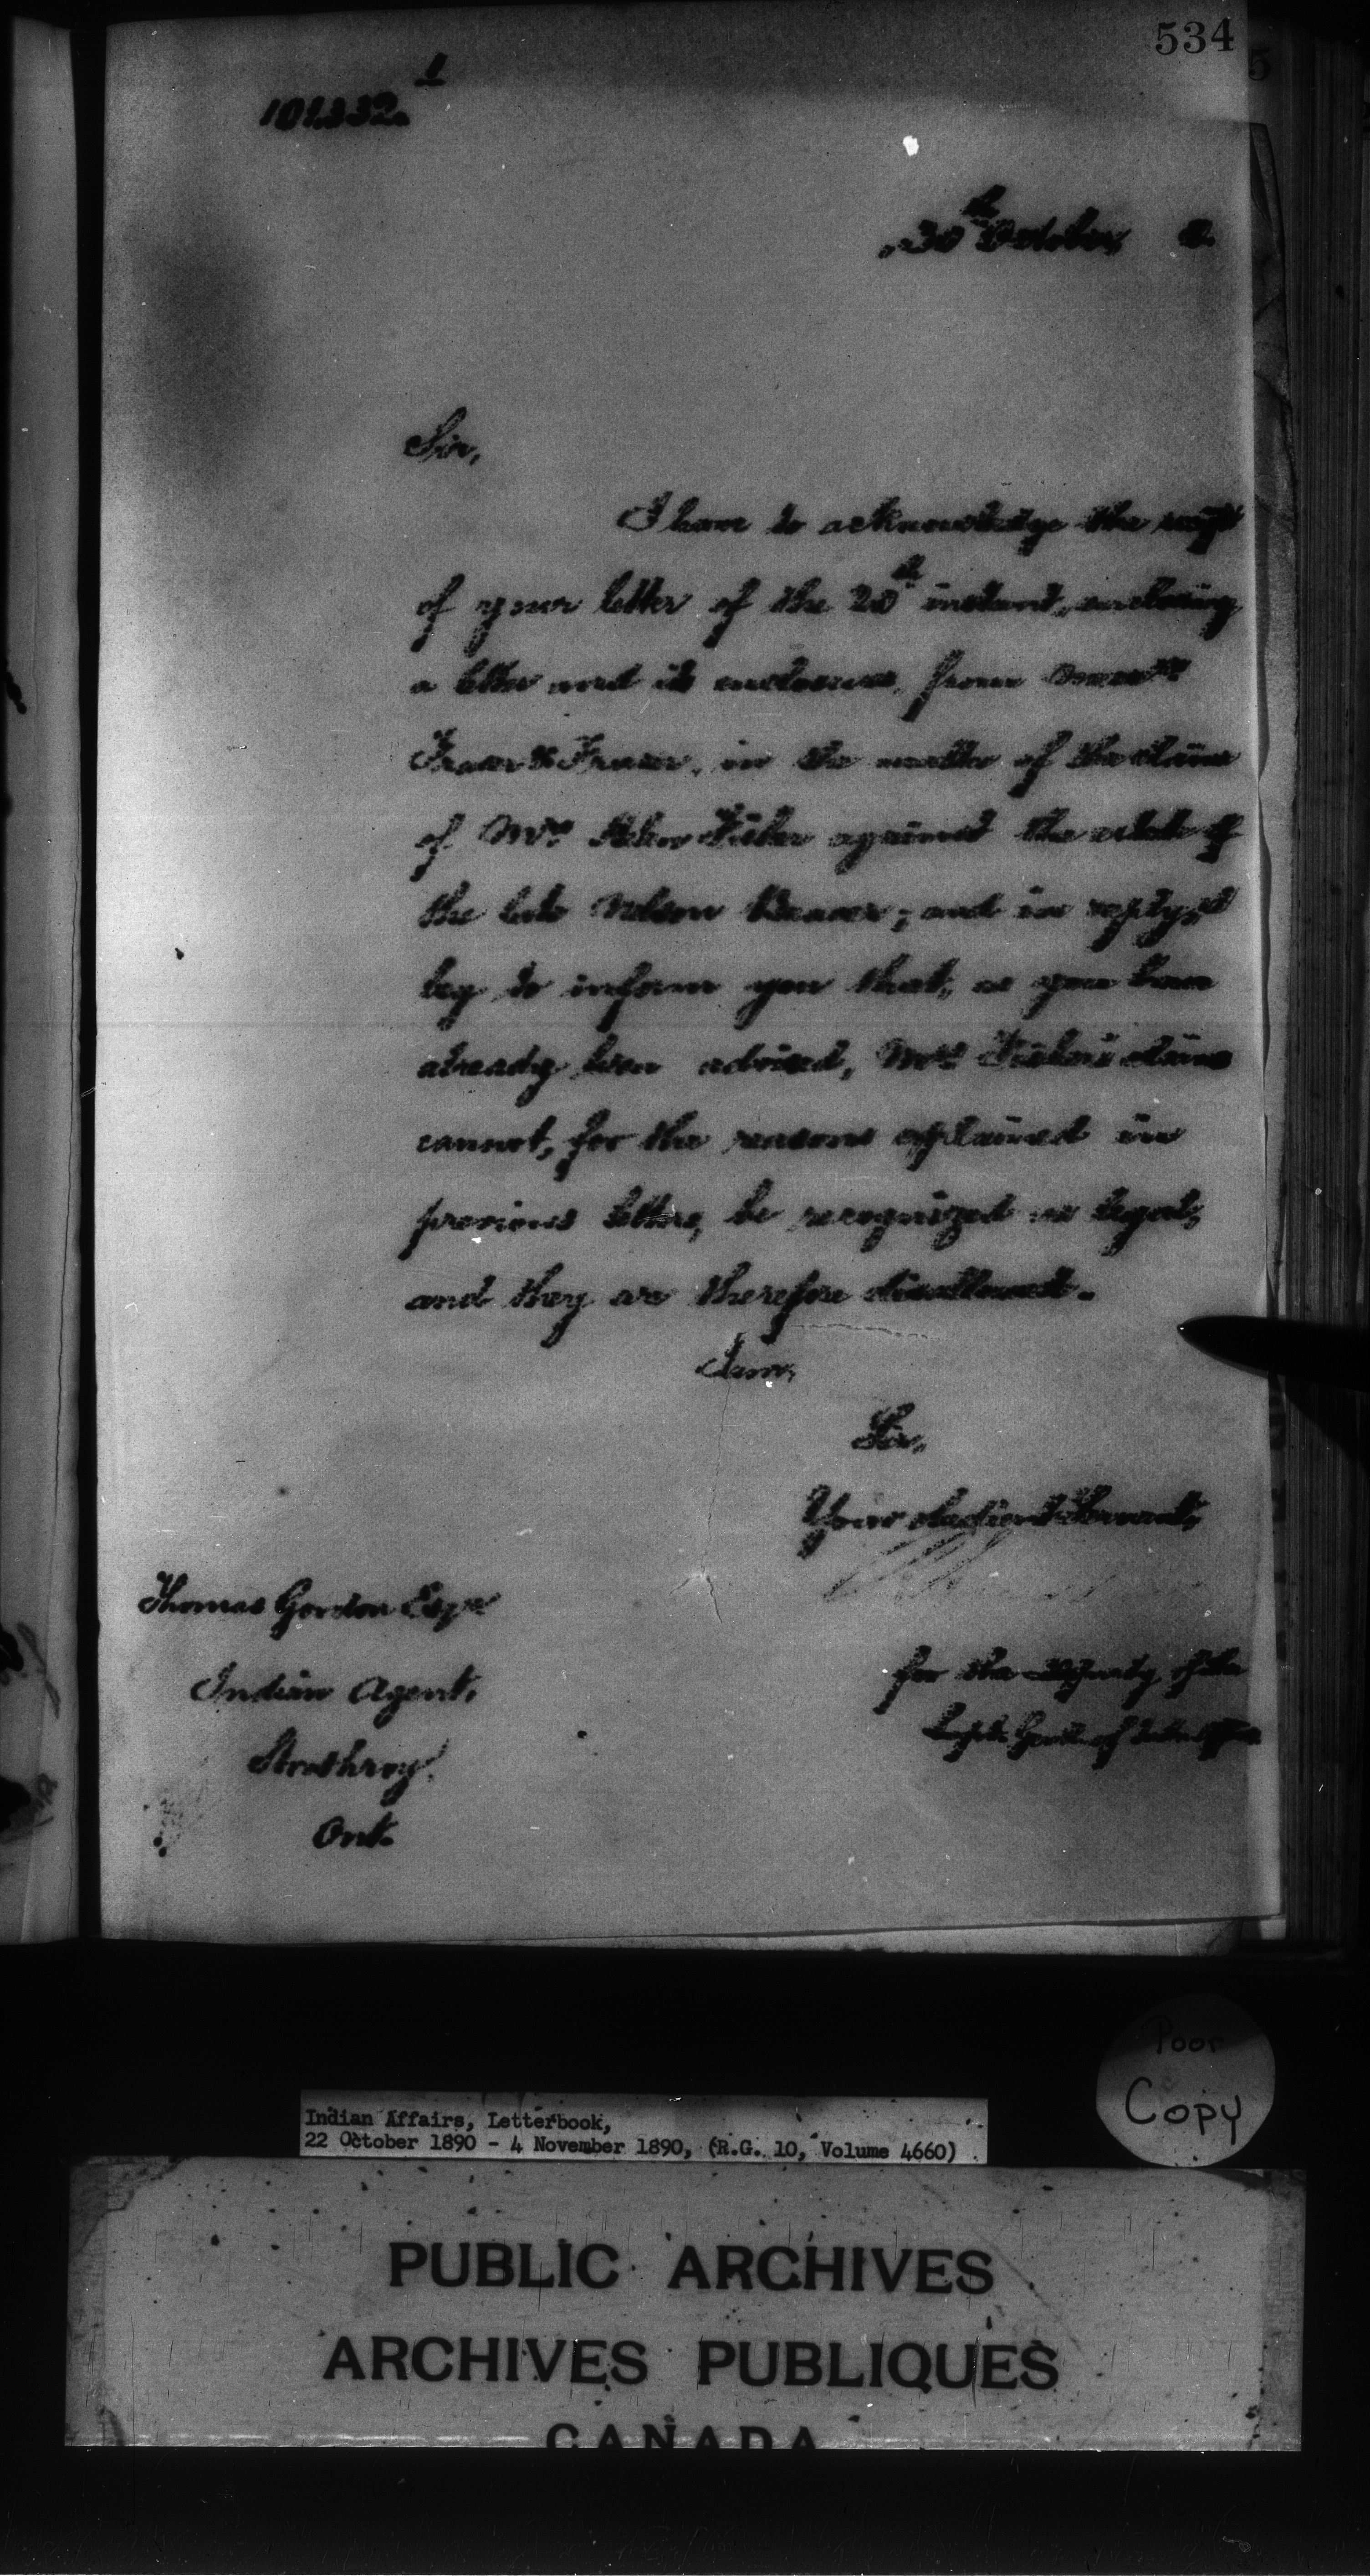 534
1
101.332.
30th October, 0.
Sir,
I have to acknowledge the receipt
of your letter of the 20th instant, enclosing
a letter and its enclosures, from Messrs
Fraser & Fraser, in the matter of the claims
of Mrs Fisher against the estate of
the late Nelson Beaver; and in reply, I
beg to inform you that, as you have
already been advised, Mrs Fisher's claims
cannot, for the reasons explained in
previous letters, be recognized as legal,
and they are therefore disallowed.
I am,
Sir,
Your obedient Servant,
Thomas Gordon Esqre
Indian Agent,
Strathroy.
Ont.
for the Deputy of the
Supt. Genl. of Indn Affairs
Poor
Copy
Indian Affairs, Letterbook,
22 October 1890 - 4 November 1890, (R.G. 10, Volume 4660)
PUBLIC ARCHIVES
ARCHIVES PUBLIQUES
CANADA